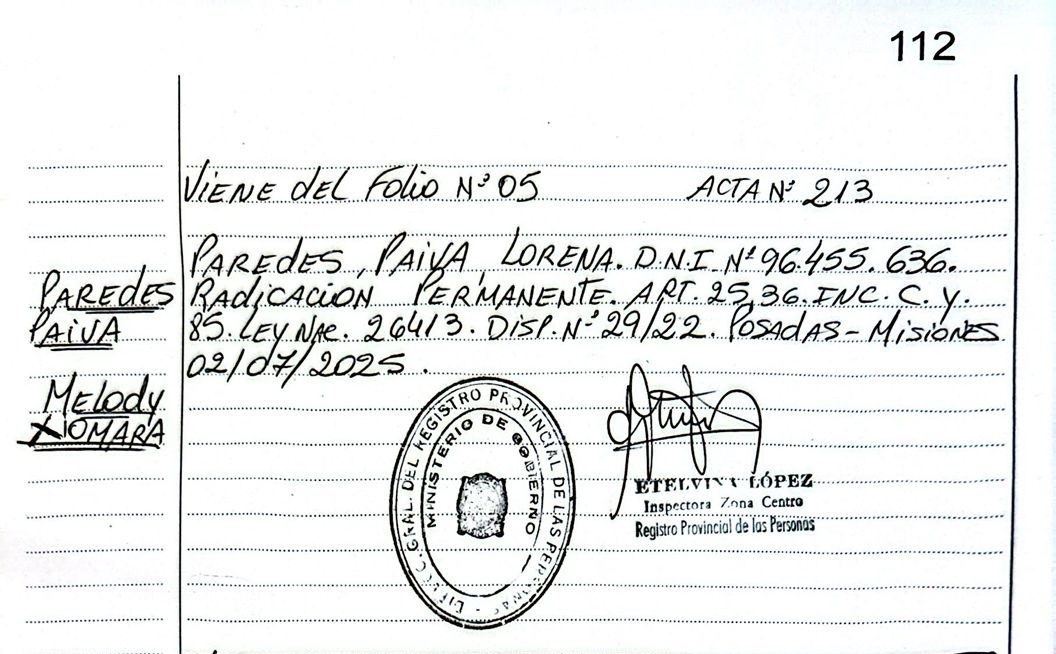 112
Viene del Folio Nº 05 ACTA Nº 213
PAREDES, PAIVA, LORENA. D.N.I. Nº 96.455.636.
RADICACION PERMANENTE. ART. 25,36. INC. C. Y.
85. LEY NAC. 26413. DISP. Nº 29/22. POSADAS - MISIONES
02/07/2025.
PAREDES
PAIVA
MELODY
XIOMARA
DIREC. GRAL. DEL REGISTRO PROVINCIAL DE LAS PERSONAS
MINISTERIO DE GOBIERNO
ETELVINA LÓPEZ
Inspectora Zona Centro
Registro Provincial de las Personas